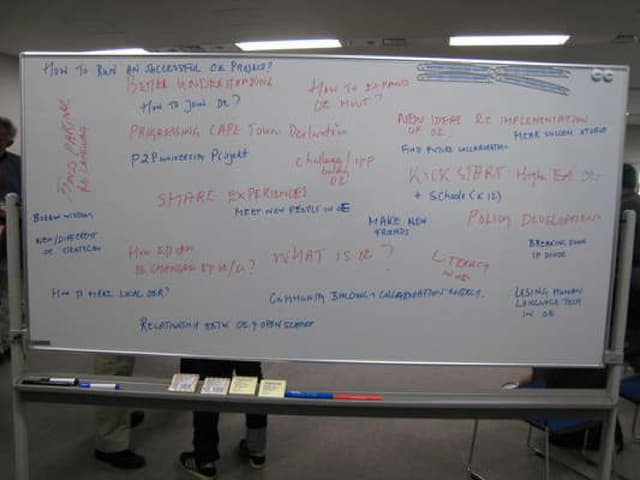 HOW TO RUN AN SUCCESSFUL OE PROJECT?
BETTER UNDERSTANDING
HOW TO JOIN OE?
HOW TO EXPAND
OE MOVT?
FIND PARTNER
RE LANGUAGE
PROGRESSING CAPE TOWN Declaration
NEW IDEAS RE IMPLEMENTATION
OF OE
HEAR SUCCESS STORIES
P2P UNIVERSITY Projekt
Challenges / opp
building
OE
FIND FUTURE COLLABORATION
KICK START High Ed OE
+ Schools (K12)
SHARE EXPERIENCES
MEET NEW PEOPLE IN OE
BORROW WISDOM
MAKE NEW
FRIENDS
POLICY DEVELOPMENT
NEW/DIFFERENT
OE STRATEGIES
BREAKING DOWN
IP DIVIDE
How ED can
BE CHANGED BY OE/
WHAT IS OE?
LITERACY
IN OE
HOW TO MAKE LOCAL OER?
COMMUNITY BUILDING + COLLABORATION PROJECT.
USING HUMAN
LANGUAGE TECH
IN OE
RELATIONSHIP BETW OE + OPEN SCIENCE